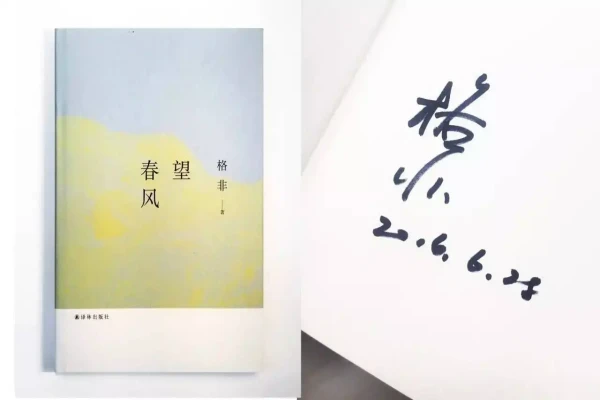 望
春风
格非 著
译林出版社
格非
2016.6.28